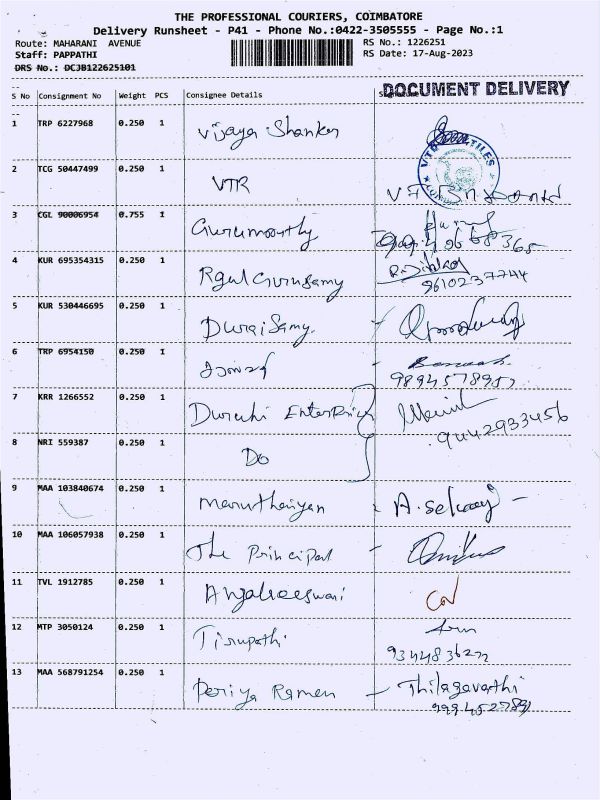 THE PROFESSIONAL COURIERS, COIMBATORE
Delivery Runsheet - P41 - Phone No.:0422-3505555 - Page No.:1
Route: MAHARANI AVENUE RS No.: 1226251
Staff: PAPPATHI RS Date: 17-Aug-2023
DRS No.: DCJB122625101
DOCUMENT DELIVERY
S No Consignment No Weight PCS Consignee Details Signature
1 TRP 6227968 0.250 1 Vijaya Shanker
2 TCG 50447499 0.250 1 VTR
VTR TILES
3 CGL 90006954 0.755 1 Gurumoorthy
4 KUR 695354315 0.250 1 Rgul Gurusamy
9610237744
5 KUR 530446695 0.250 1 Durai Samy.
6 TRP 6954150 0.250 1
7 KRR 1266552 0.250 1 Enterprices
9442933456
8 NRI 559387 0.250 1 Do
9 MAA 103840674 0.250 1 A. Selvaraj -
10 MAA 106057938 0.250 1 The Principal -
11 TVL 1912785 0.250 1
12 MTP 3050124 0.250 1 Tirupathi
13 MAA 568791254 0.250 1 Periya Ramen - Thilagavathi